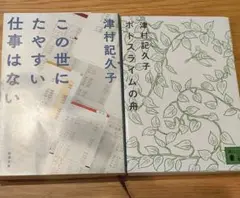 津村記久子
この世に
たやすい
仕事はない
津村記久子
ポトスライムの舟